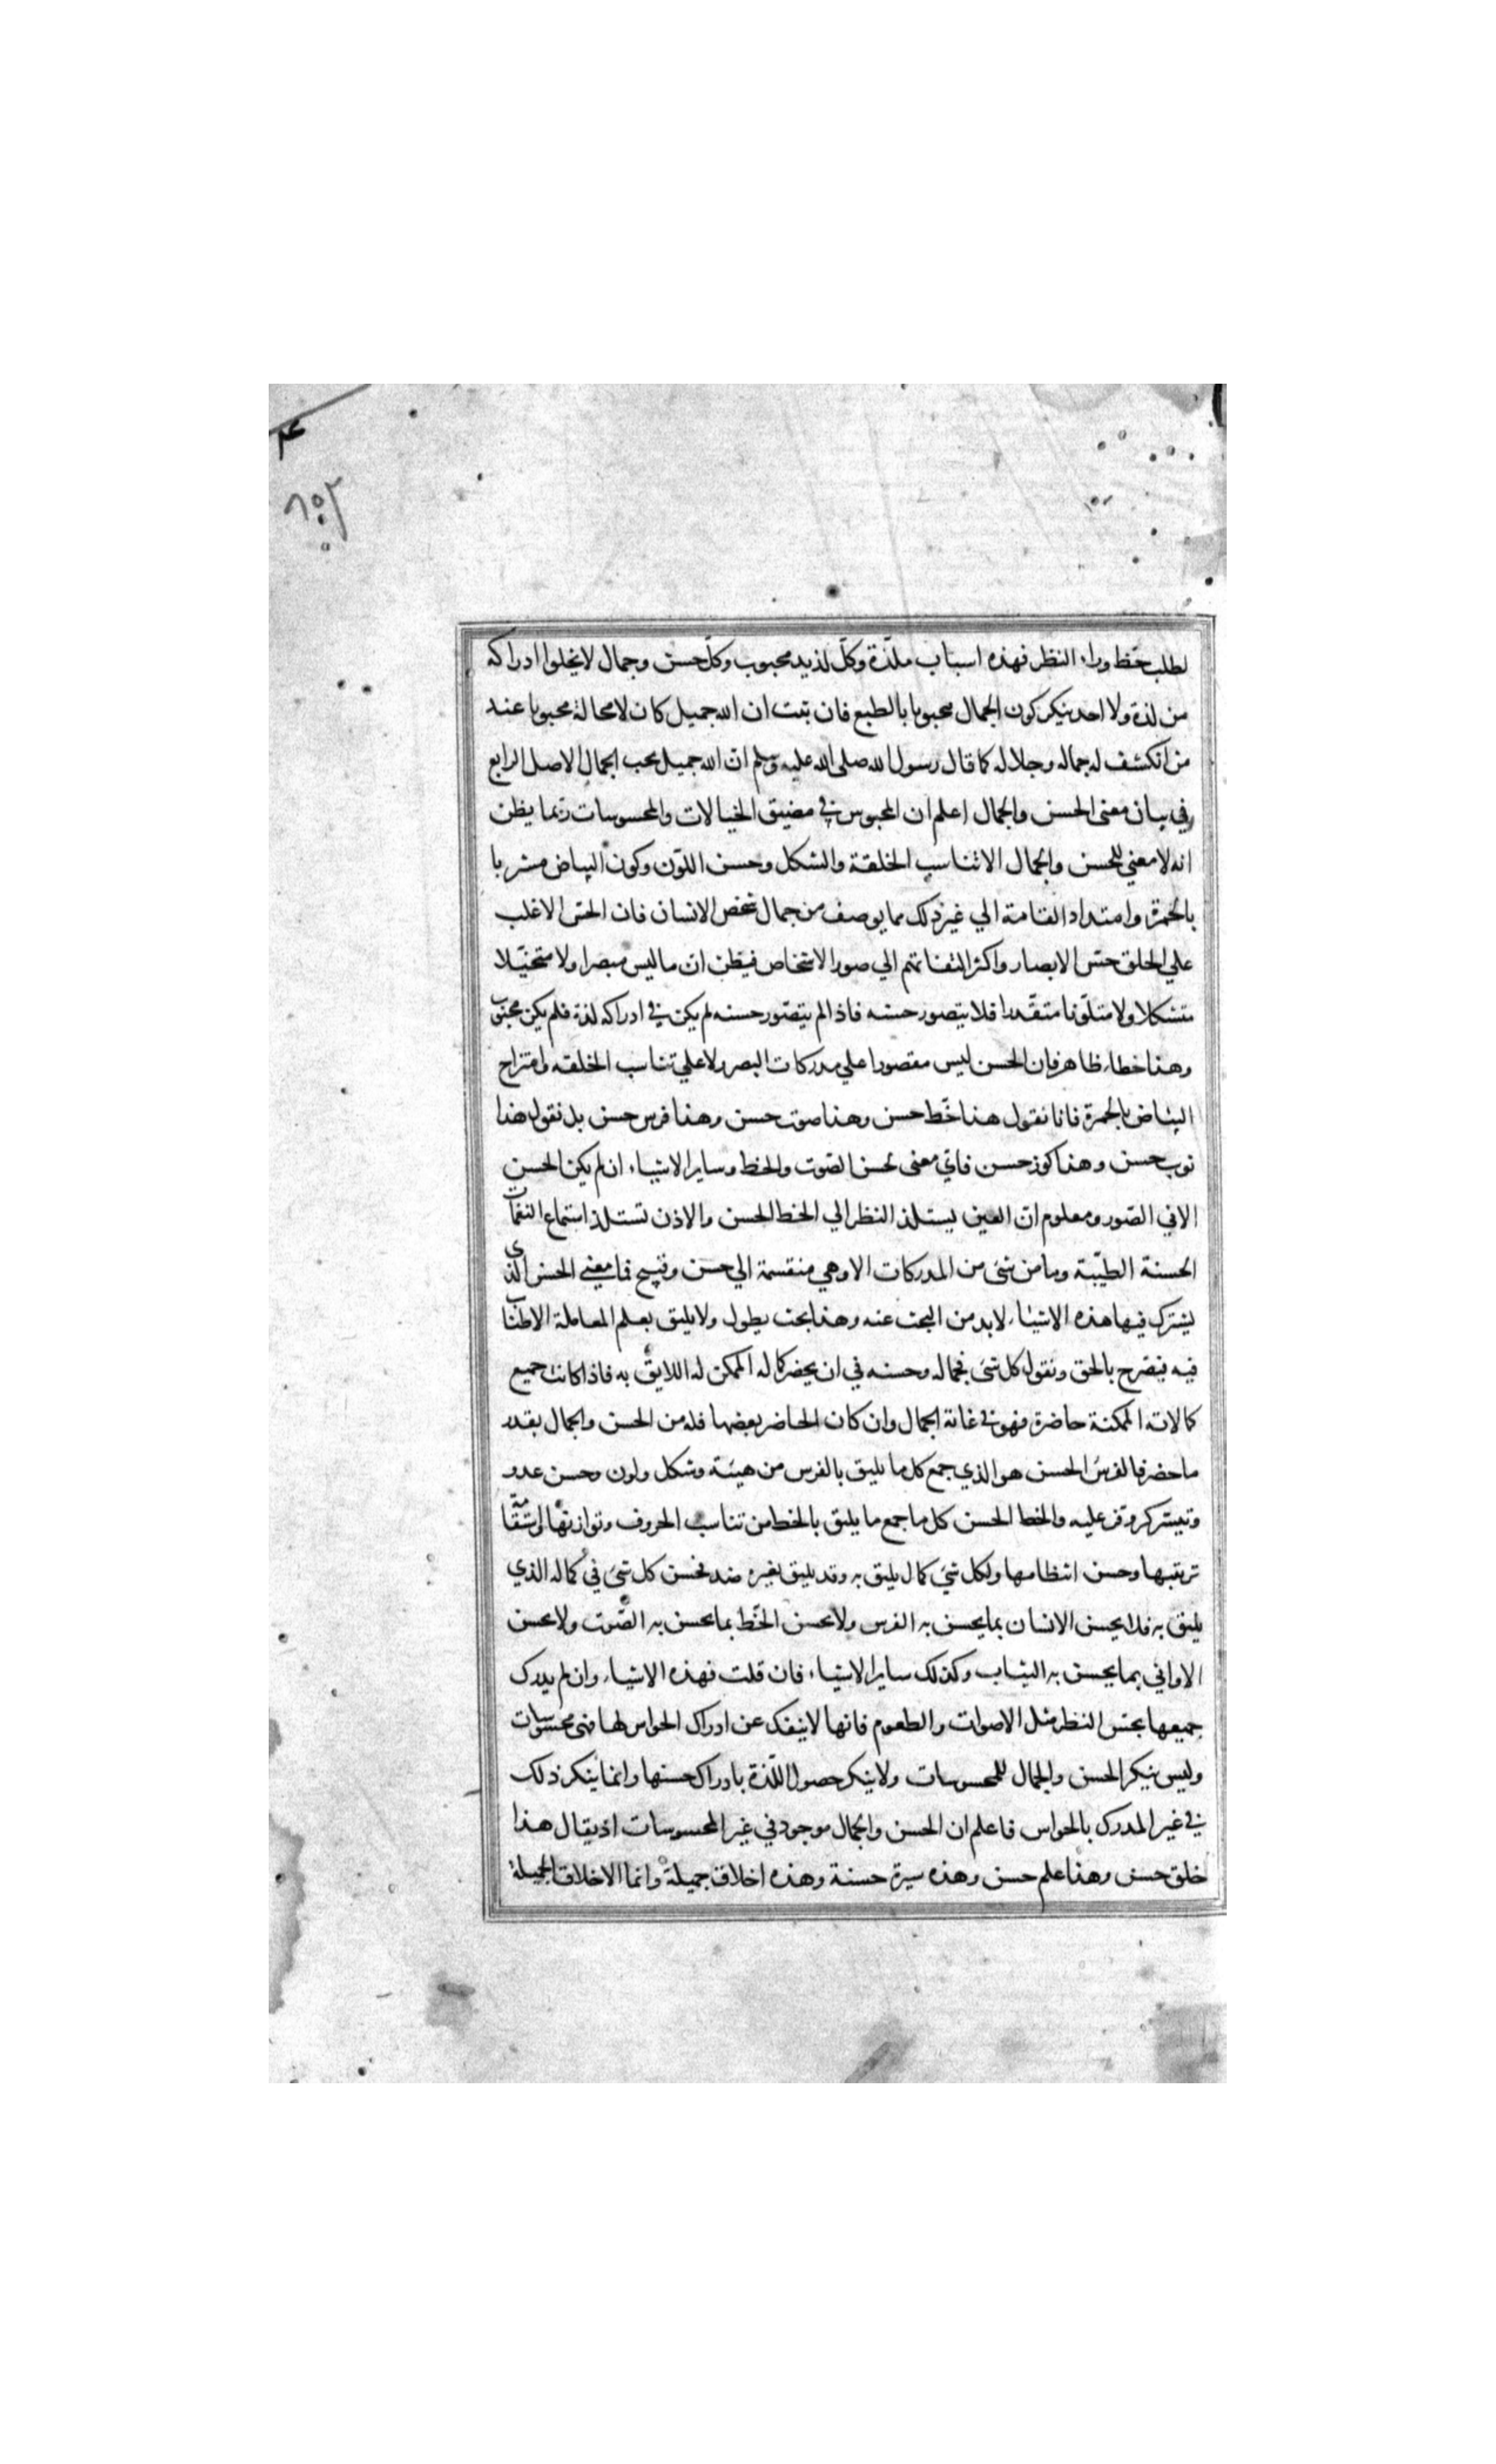 لطلب حظ وراء النظر فهذه اسباب ملذة وكل لذيذ محبوب وكل حسن وجمال لا يخلوا ادراكه
من لذة ولا احد ينكر كون الجمال محبوبا بالطبع فان ثبت ان الله جميل كان لا محالة محبوبا عند
من انكشف له جماله وجلاله كما قال رسول الله صلى الله عليه وسلم ان الله جميل يحب الجمال الاصل الرابع
في بيان معنى الحسن والجمال اعلم ان المحبوس في مضيق الخيالات والمحسوسات ربما يظن
انه لا معني للحسن والجمال الا تناسب الخلقة والشكل وحسن اللون وكون البياض مشربا
بالحمرة وامتداد القامة الي غير ذلك مما يوصف من جمال شخص الانسان فان الحس الاغلب
علي الخلق حس الابصار واكثر التفاتهم الي صور الاشخاص فيظن ان ما ليس مبصرا ولا متخيلا
متشكلا ولا متلونا متقدرا فلا يتصور حسنه فاذا لم يتصور حسنه لم يكن في ادراكه لذة فلم يكن محبوبا
وهذا خطاء ظاهر فان الحسن ليس مقصورا علي مدركات البصر ولا علي تناسب الخلقه وامتزاج
البياض بالحمرة فانا نقول هذا خط حسن وهذا صوت حسن وهذا فرس حسن بل نقول هذا
ثوب حسن وهذا كوز حسن فاي معنى لحسن الصوت والخط وساير الاشياء ان لم يكن الحسن
الا في الصور ومعلوم ان العين يستلذ النظر الي الخط الحسن والاذن تستلذ استماع النغمات
الحسنة الطيبة وما من شئ من المدركات الا وهي منقسمة الي حسن وقبيح فما معني الحسن الذي
يشترك فيها هذه الاشياء لا بد من البحث عنه وهذا بحث يطول ولا يليق بعلم المعاملة الاطناب
فيه فنصرح بالحق ونقول كل شئ فجماله وحسنه في ان يحضر كماله الممكن له اللايق به فاذا كانت جميع
كمالاته الممكنة حاضرة فهو في غاية الجمال وان كان الحاضر بعضها فله من الحسن والجمال بقدر
ما حضر فالفرس الحسن هو الذي جمع كل ما يليق بالفرس من هيئة وشكل ولون وحسن عدو
وتيسر كر وفر عليه والخط الحسن كل ما جمع ما يليق بالخط من تناسب الحروف وتوازنها واستقامة
ترتيبها وحسن انتظامها ولكل شئ كمال يليق به وقد يليق بغيره ضده فحسن كل شئ في كماله الذي
يليق به فلا يحسن الانسان بما يحسن به الفرس ولا يحسن الخط بما يحسن به الصوت ولا يحسن
الاواني بما يحسن به الثياب وكذلك ساير الاشياء فان قلت فهذه الاشياء وان لم يدرك
جميعها بحس النظر مثل الاصوات والطعوم فانها لا ينفك عن ادراك الحواس لها فهي محسوسات
وليس ينكر الحسن والجمال للمحسوسات ولا ينكر حصول اللذة بادراك حسنها وانما ينكر ذلك
في غير المدرك بالحواس فاعلم ان الحسن والجمال موجود في غير المحسوسات اذ يقال هذا
خلق حسن وهذا علم حسن وهذه سيرة حسنة وهذه اخلاق جميلة وانما الاخلاق الجميلة